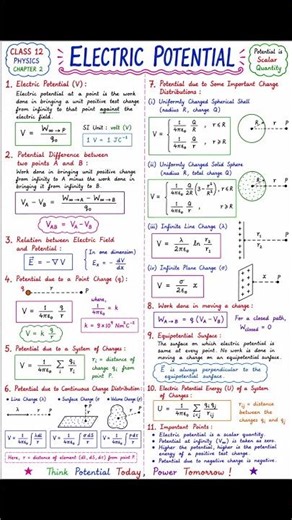 CLASS 12
PHYSICS
CHAPTER 2
ELECTRIC POTENTIAL
Potential is
Scalar
Quantity
1. Electric Potential (V) :
Electric potential at a point is the work
done in bringing a unit positive test charge
from infinity to that point against the
electric field.
V = W∞→P / q₀
SI Unit : volt (V)
1 V = 1 JC⁻¹
2. Potential Difference between
two points A and B :
Work done in bringing unit positive charge
from infinity to A minus the work done in
bringing it from infinity to B.
V_A - V_B = (W∞→A - W∞→B) / q₀
V_AB = V_A - V_B
3. Relation between Electric Field
and Potential :
E = -∇V
(In one dimension)
Eₓ = - dV/dx
4. Potential due to a Point Charge (q) :
q r P
V = 1/4πε₀ q/r
where,
1/4πε₀ = k
V = k q/r
k = 9×10⁹ Nm²C⁻²
5. Potential due to a System of Charges :
V = 1/4πε₀ Σ qᵢ/rᵢ
rᵢ = distance of
charge qᵢ from
point P.
6. Potential due to Continuous Charge Distribution :
• Line Charge (λ)
• Surface Charge (σ)
• Volume Charge (ρ)
Here, r = distance of element (dl, dS, dτ) from point P.
7. Potential due to Some Important Charge
Distributions :
(i) Uniformly Charged Spherical Shell
(radius R, charge Q)
(ii) Uniformly Charged Solid Sphere
(radius R, total charge Q)
(iii) Infinite Line Charge (λ)
V = λ/2πε₀ ln r₂/r₁
(iv) Infinite Plane Charge (σ)
8. Work done in moving a charge :
W_A→B = q (V_A - V_B)
For a closed path,
W_closed = 0
9. Equipotential Surface :
The surface on which electric potential is
same at every point. No work is done in
moving a charge on an equipotential surface.
E is always perpendicular to the
equipotential surface.
10. Electric Potential Energy (U) of a System
of Charges :
rᵢⱼ = distance
between the
charges qᵢ and qⱼ
11. Important Points :
• Electric potential is a scalar quantity.
• Potential at infinity (V∞) is taken as zero.
• Higher the potential, higher is the potential
energy of a positive test charge.
• Potential due to negative charge is negative.
Think Potential Today, Power Tomorrow !